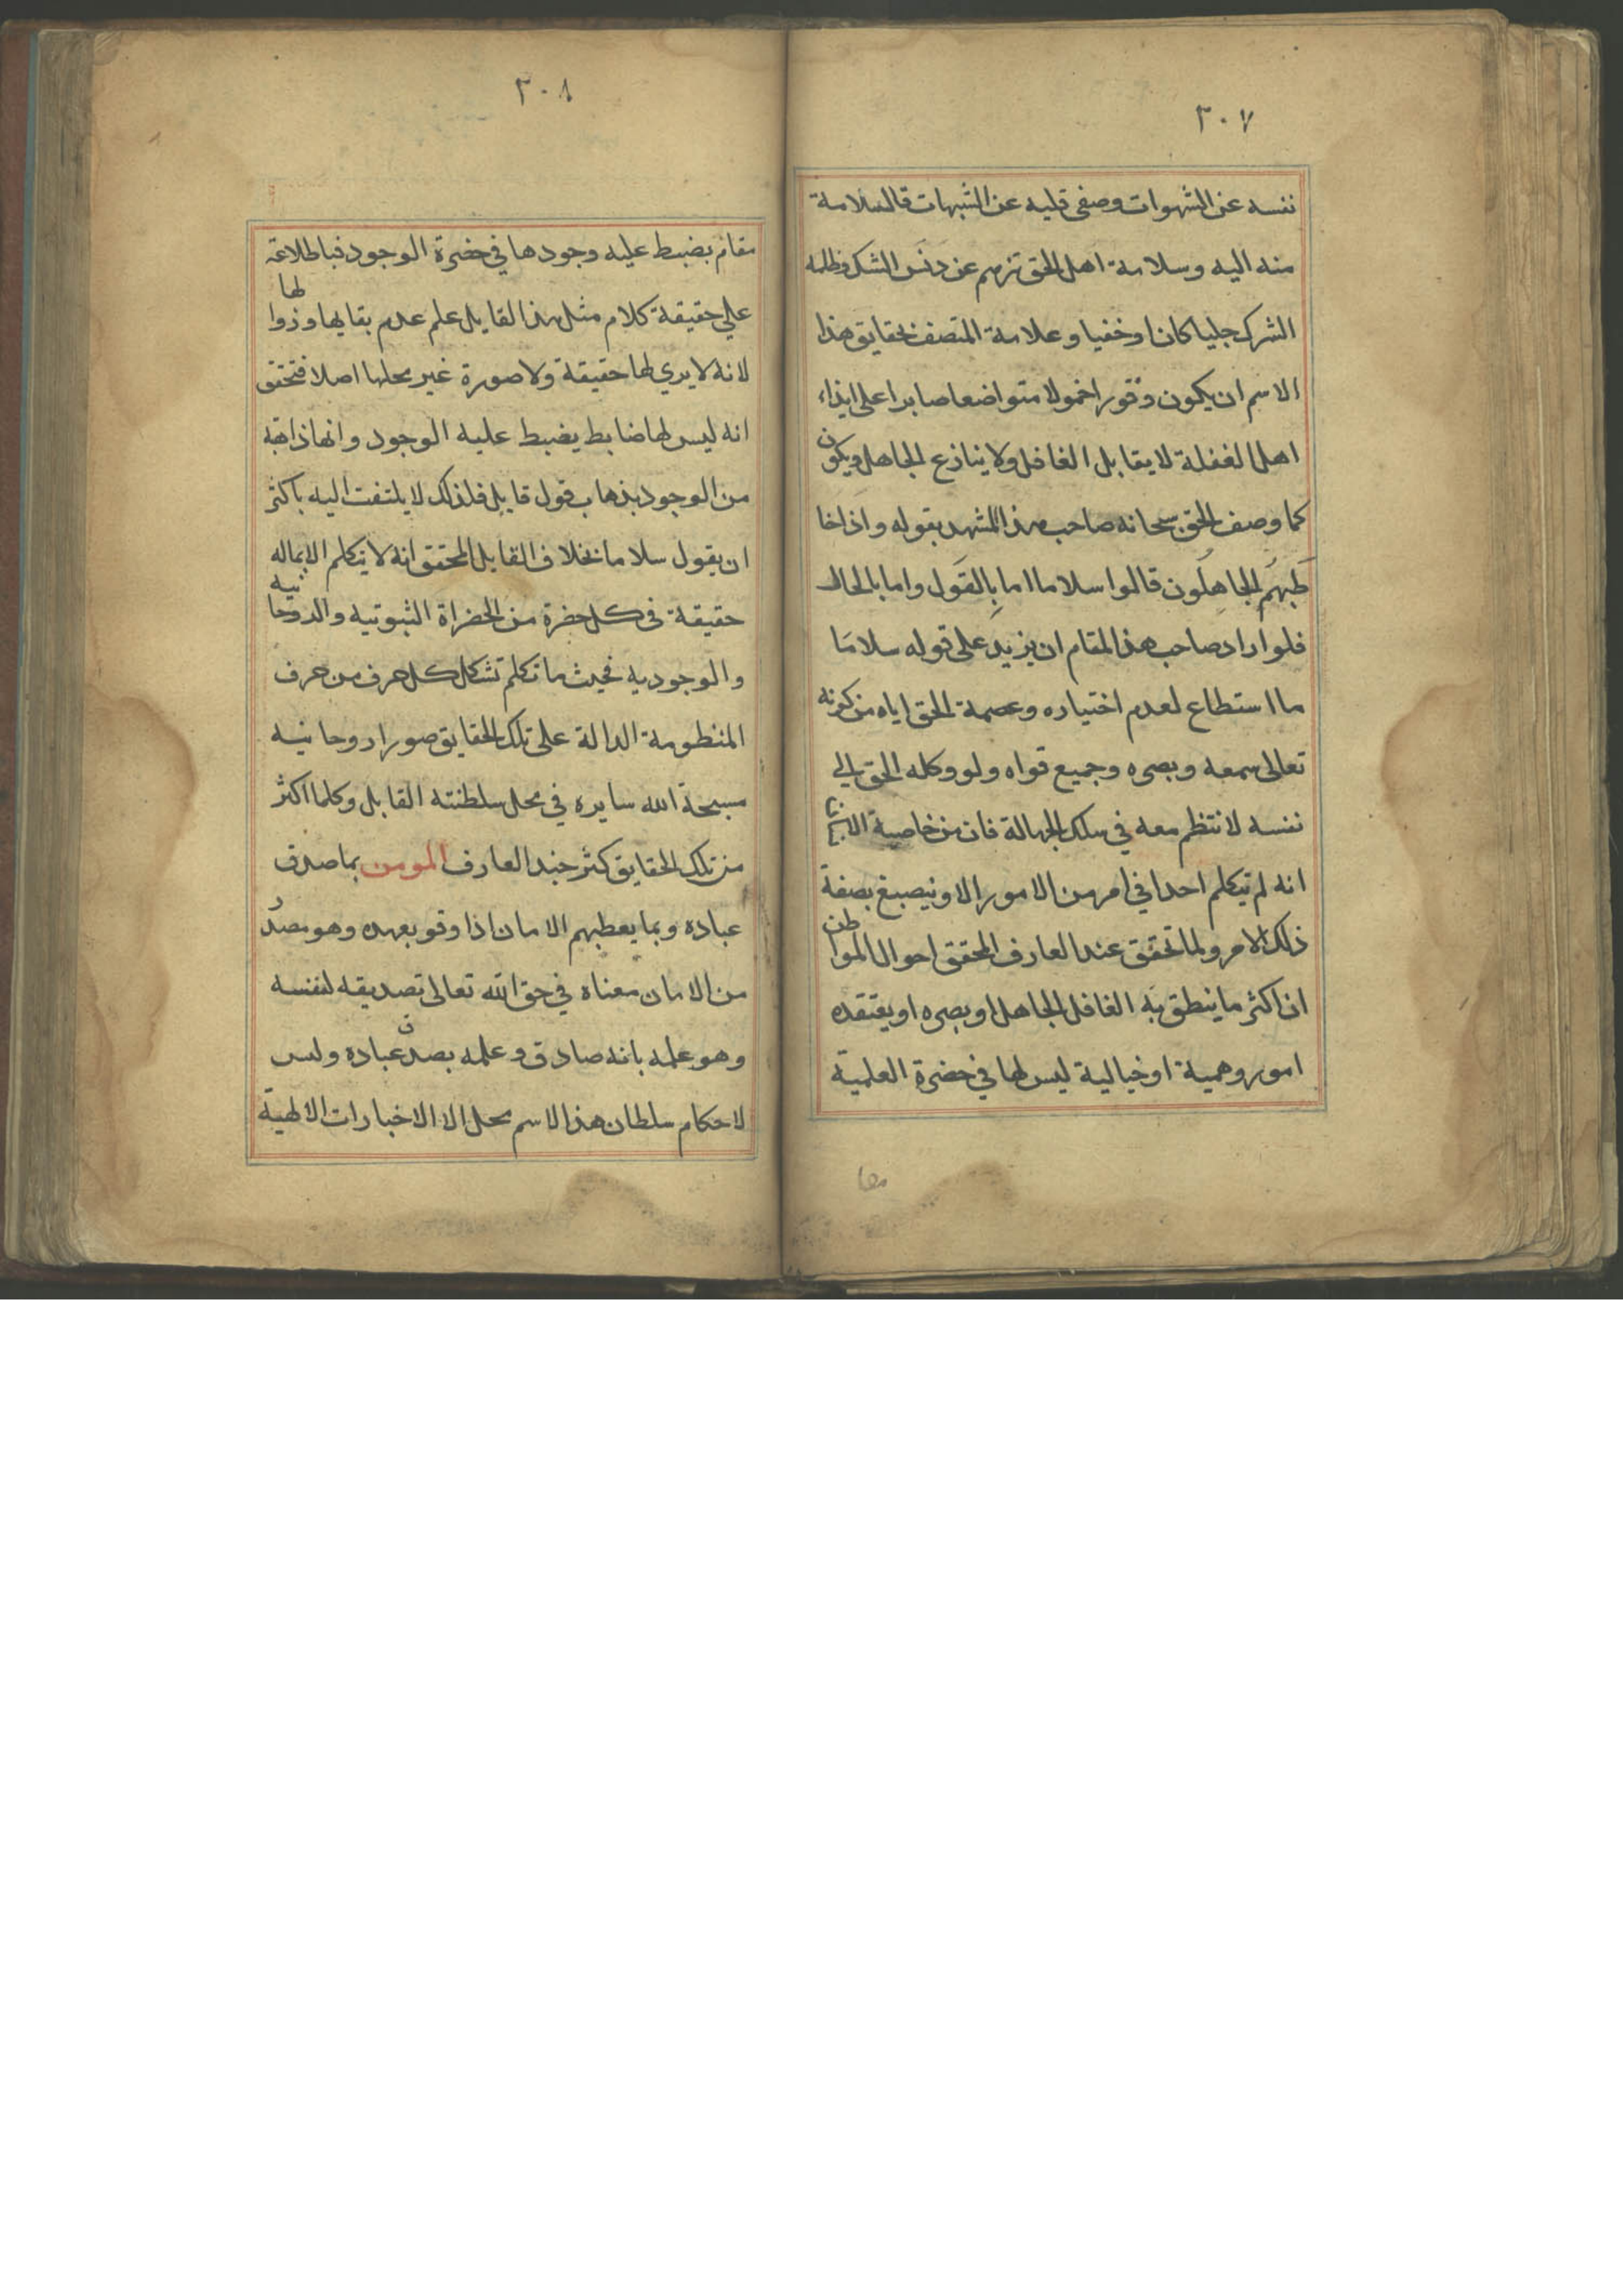 ٣٠٧
نفسه عن الشهوات وصفى قلبه عن الشبهات قالسلامة
منه اليه وسلامة اهل الحق تنزههم عن دنس الشك وظلمة
الشرك جليا كان اوخفيا وعلامة المتصف بحقايق هذا
الاسم ان يكون وقورا خمولا متواضعا صابرا على ايذاء
اهل الغفلة لا يقابل الغافل ولا ينازع الجاهل ويكون
كما وصف الحق سبحانه صاحب هذا المشهد بقوله واذا خا
طبهم الجاهلون قالوا سلاما اما بالقول واما بالحال
فلو اراد صاحب هذا المقام ان يزيد على قوله سلاما
ما استطاع لعدم اختياره وعصمة الحق اياه من كونه
تعالى سمعه وبصره وجميع قواه ولو وكله الحق الى
نفسه لانتظم معه في سلك الجهالة فان من خاصية
انه لم يتكلم احد في امر من الامور الا وينصبغ بصفة
ذلك الامر ولما تحقق عند العارف المحقق احوال المواطن
ان اكثر ما ينطق به الغافل الجاهل او بصره او يعتقده
امور وهمية او خيالية ليس لها في حضرة العلمية
٣٠٨
مقام يضبط عليه وجودها في حضرة الوجود فباطلاعه
على حقيقة كلام مثل هذا القايل علم عدم بقايها وزوالها
لانه لا يرى لها حقيقة ولا صورة غير محلها اصلا فتحقق
انه ليس لها ضابط يضبط عليه الوجود وانها ذاهبة
من الوجود بذهاب قول قايل فلذلك لا يلتفت اليه باكثر
ان يقول سلاما بخلاف القايل المحقق انه لا يتكلم الا بماله
حقيقة في كل حضرة من الحضراة الثبوتيه والروحانيه
والوجوديه فحيث ما تكلم تشكل كل حرف من حرف
المنظومة الدالة على تلك الحقايق صورا روحانيه
مسبحة الله سايره في محل سلطنته القابل وكلما اكثر
من تلك الحقايق كثر جند العارف المومن بما صدق
عباده وبما يعطيهم الامان اذا وفو بعهده وهو مصدر
من الامان معناه في حق الله تعالى تصديقه لنفسه
وهو علمه بانه صادق وعلمه بصدق عباده وليس
لاحكام سلطان هذا الاسم محل الا الاخبارات الالهية